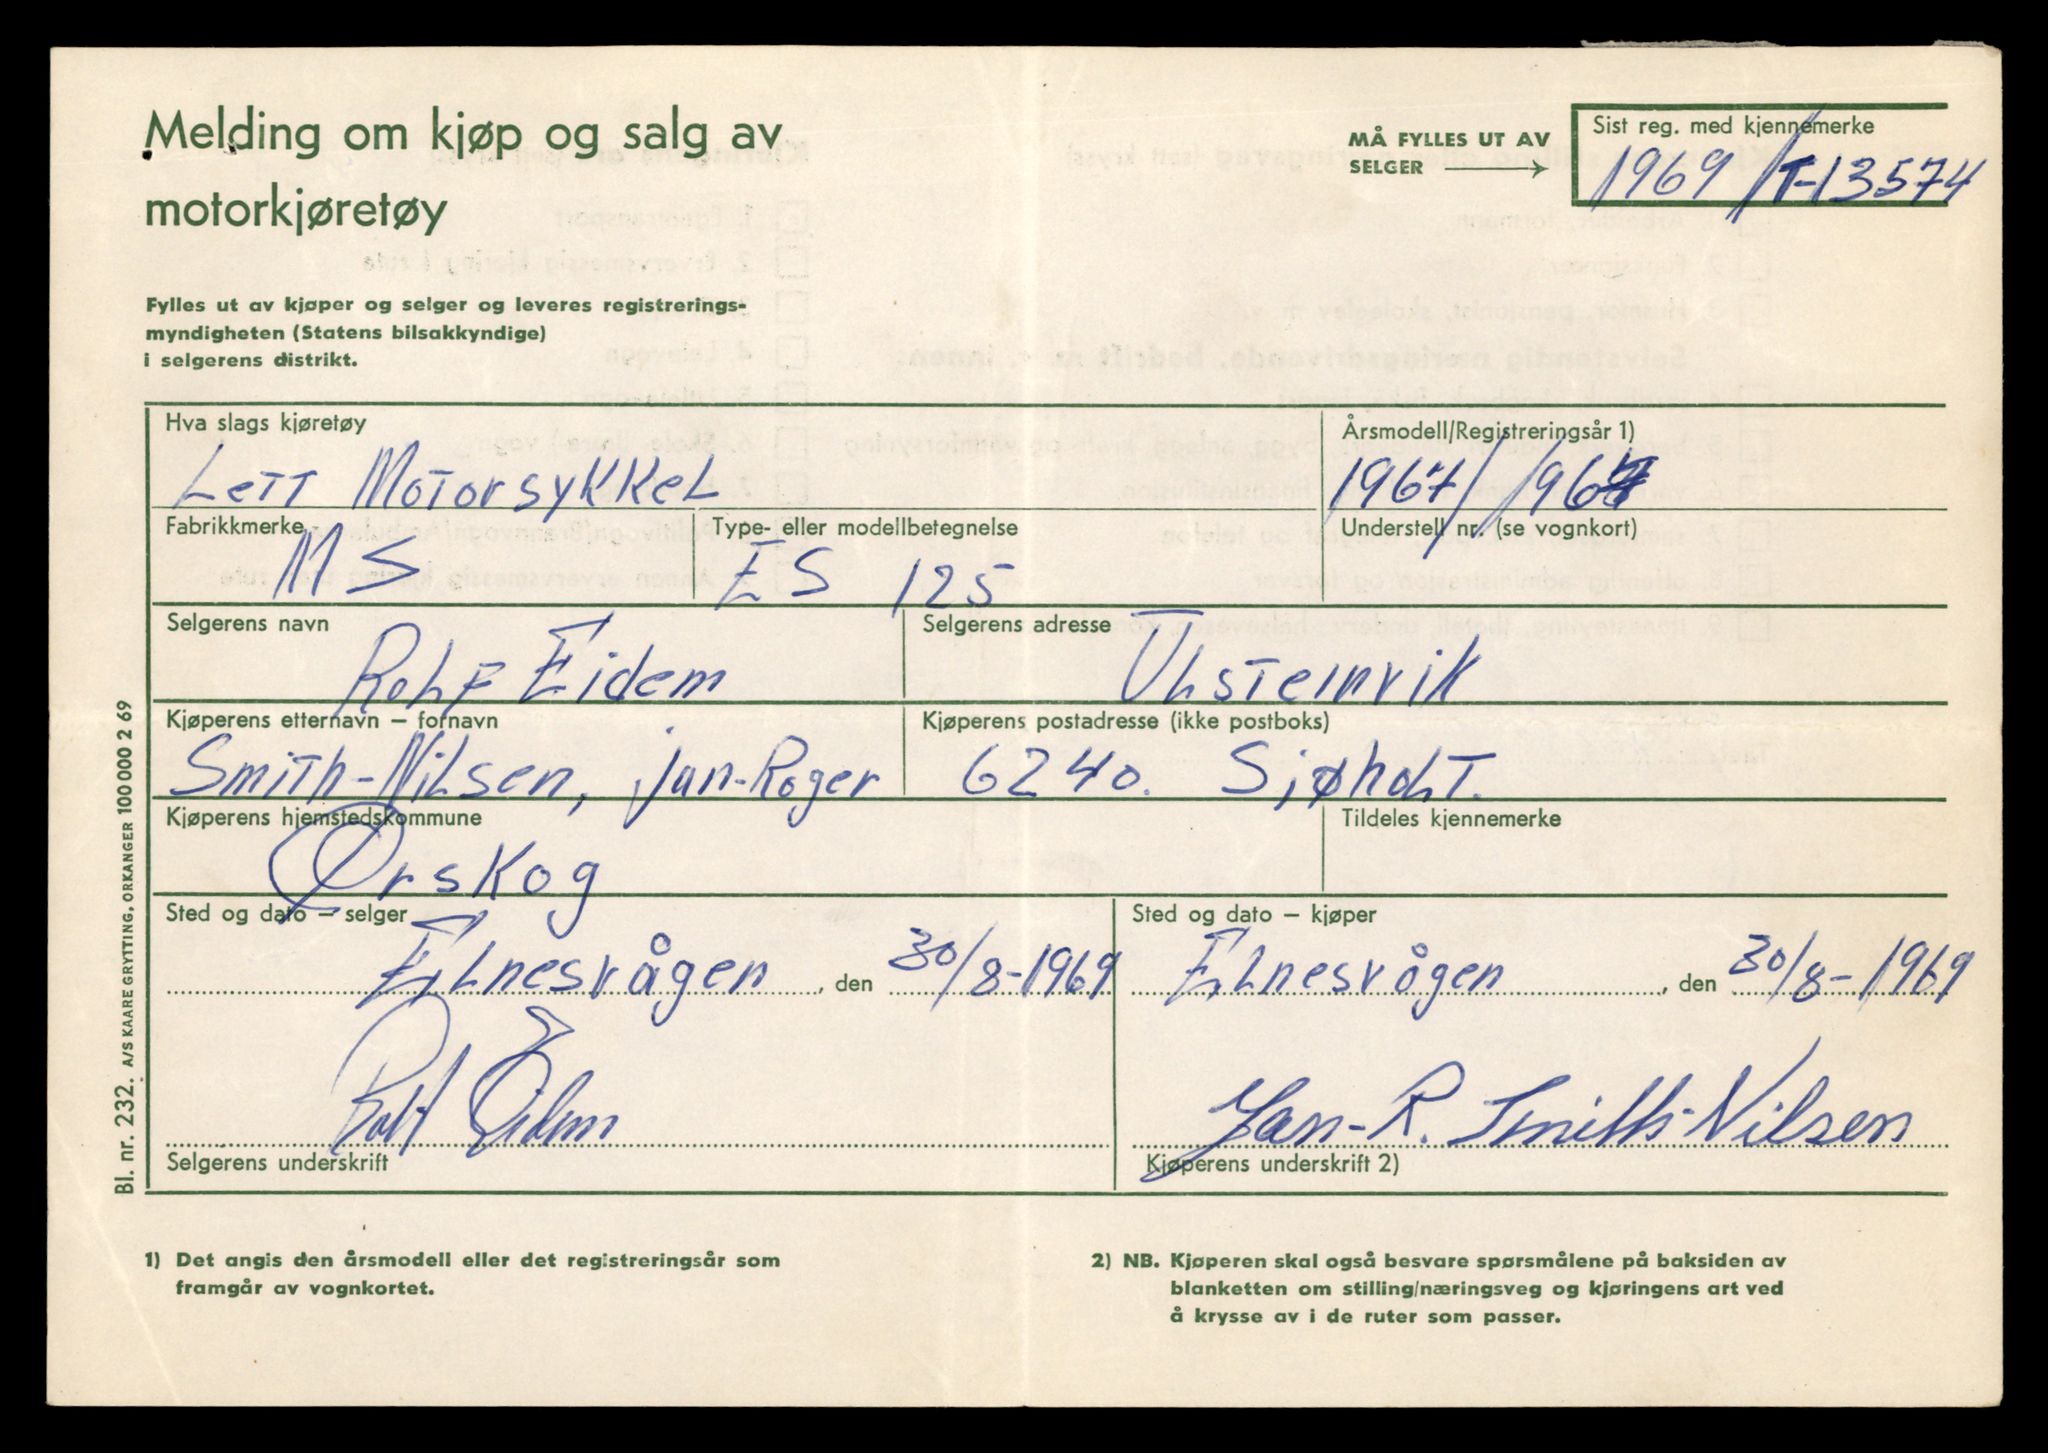 Melding om kjøp og salg av
motorkjøretøy
MÅ FYLLES UT AV
SELGER
Sist reg. med kjennemerke
1969 / T-13574
Fylles ut av kjøper og selger og leveres registrerings-
myndigheten (Statens bilsakkyndige)
i selgerens distrikt.
Hva slags kjøretøy
Lett Motorsykkel
Årsmodell/Registreringsår 1)
1967 / 1967
Fabrikkmerke
MS
Type- eller modellbetegnelse
ES 125
Understell nr. (se vognkort)
Selgerens navn
Rolf Eidem
Selgerens adresse
Ulsteinvik
Kjøperens etternavn – fornavn
Smith-Nilsen, Jan-Roger
Kjøperens postadresse (ikke postboks)
6240. Sjøholt.
Kjøperens hjemstedskommune
Ørskog
Tildeles kjennemerke
Sted og dato – selger
Elnesvågen, den 30/8-1969
Sted og dato – kjøper
Elnesvågen, den 30/8-1969
Rolf Eidem
Selgerens underskrift
Jan-R. Smith-Nilsen
Kjøperens underskrift 2)
Bl. nr. 232. A/S KAARE GRYTTING, ORKANGER 100 000 2 69
1) Det angis den årsmodell eller det registreringsår som
framgår av vognkortet.
2) NB. Kjøperen skal også besvare spørsmålene på baksiden av
blanketten om stilling/næringsveg og kjøringens art ved
å krysse av i de ruter som passer.